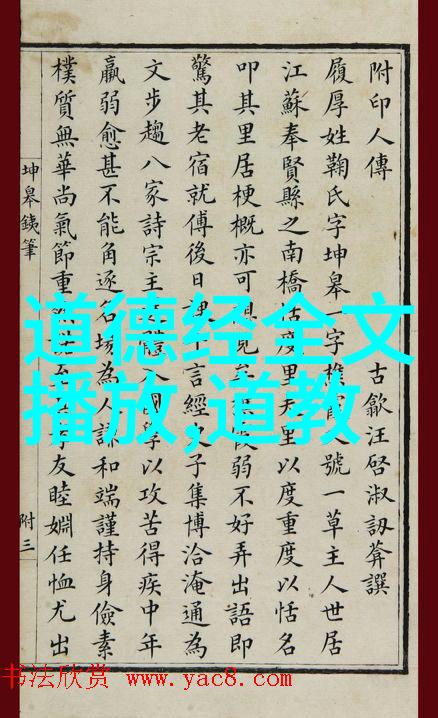 附印人傳 古歙汪啓淑訒葊譔
履厚姓鞠氏字坤皋一字 號一草主人世居
江蘇奉賢縣之南橋恬度里 里以度重度以恬名
叩其里居梗概亦可想見 弱不好弄出語即
驚其老宿就傅後日課千言經史子集博洽淹通為
文步趨八家詩宗主 體入國學以攻苦得疾中年
羸弱愈甚不能角逐名場為人謙和端謹持身儉素
樸質無華尚氣節重 友睦婣任恤尤出
坤皋鐵筆
附三
道德经全文
播放,道教
书法欣赏 www.yac8.com